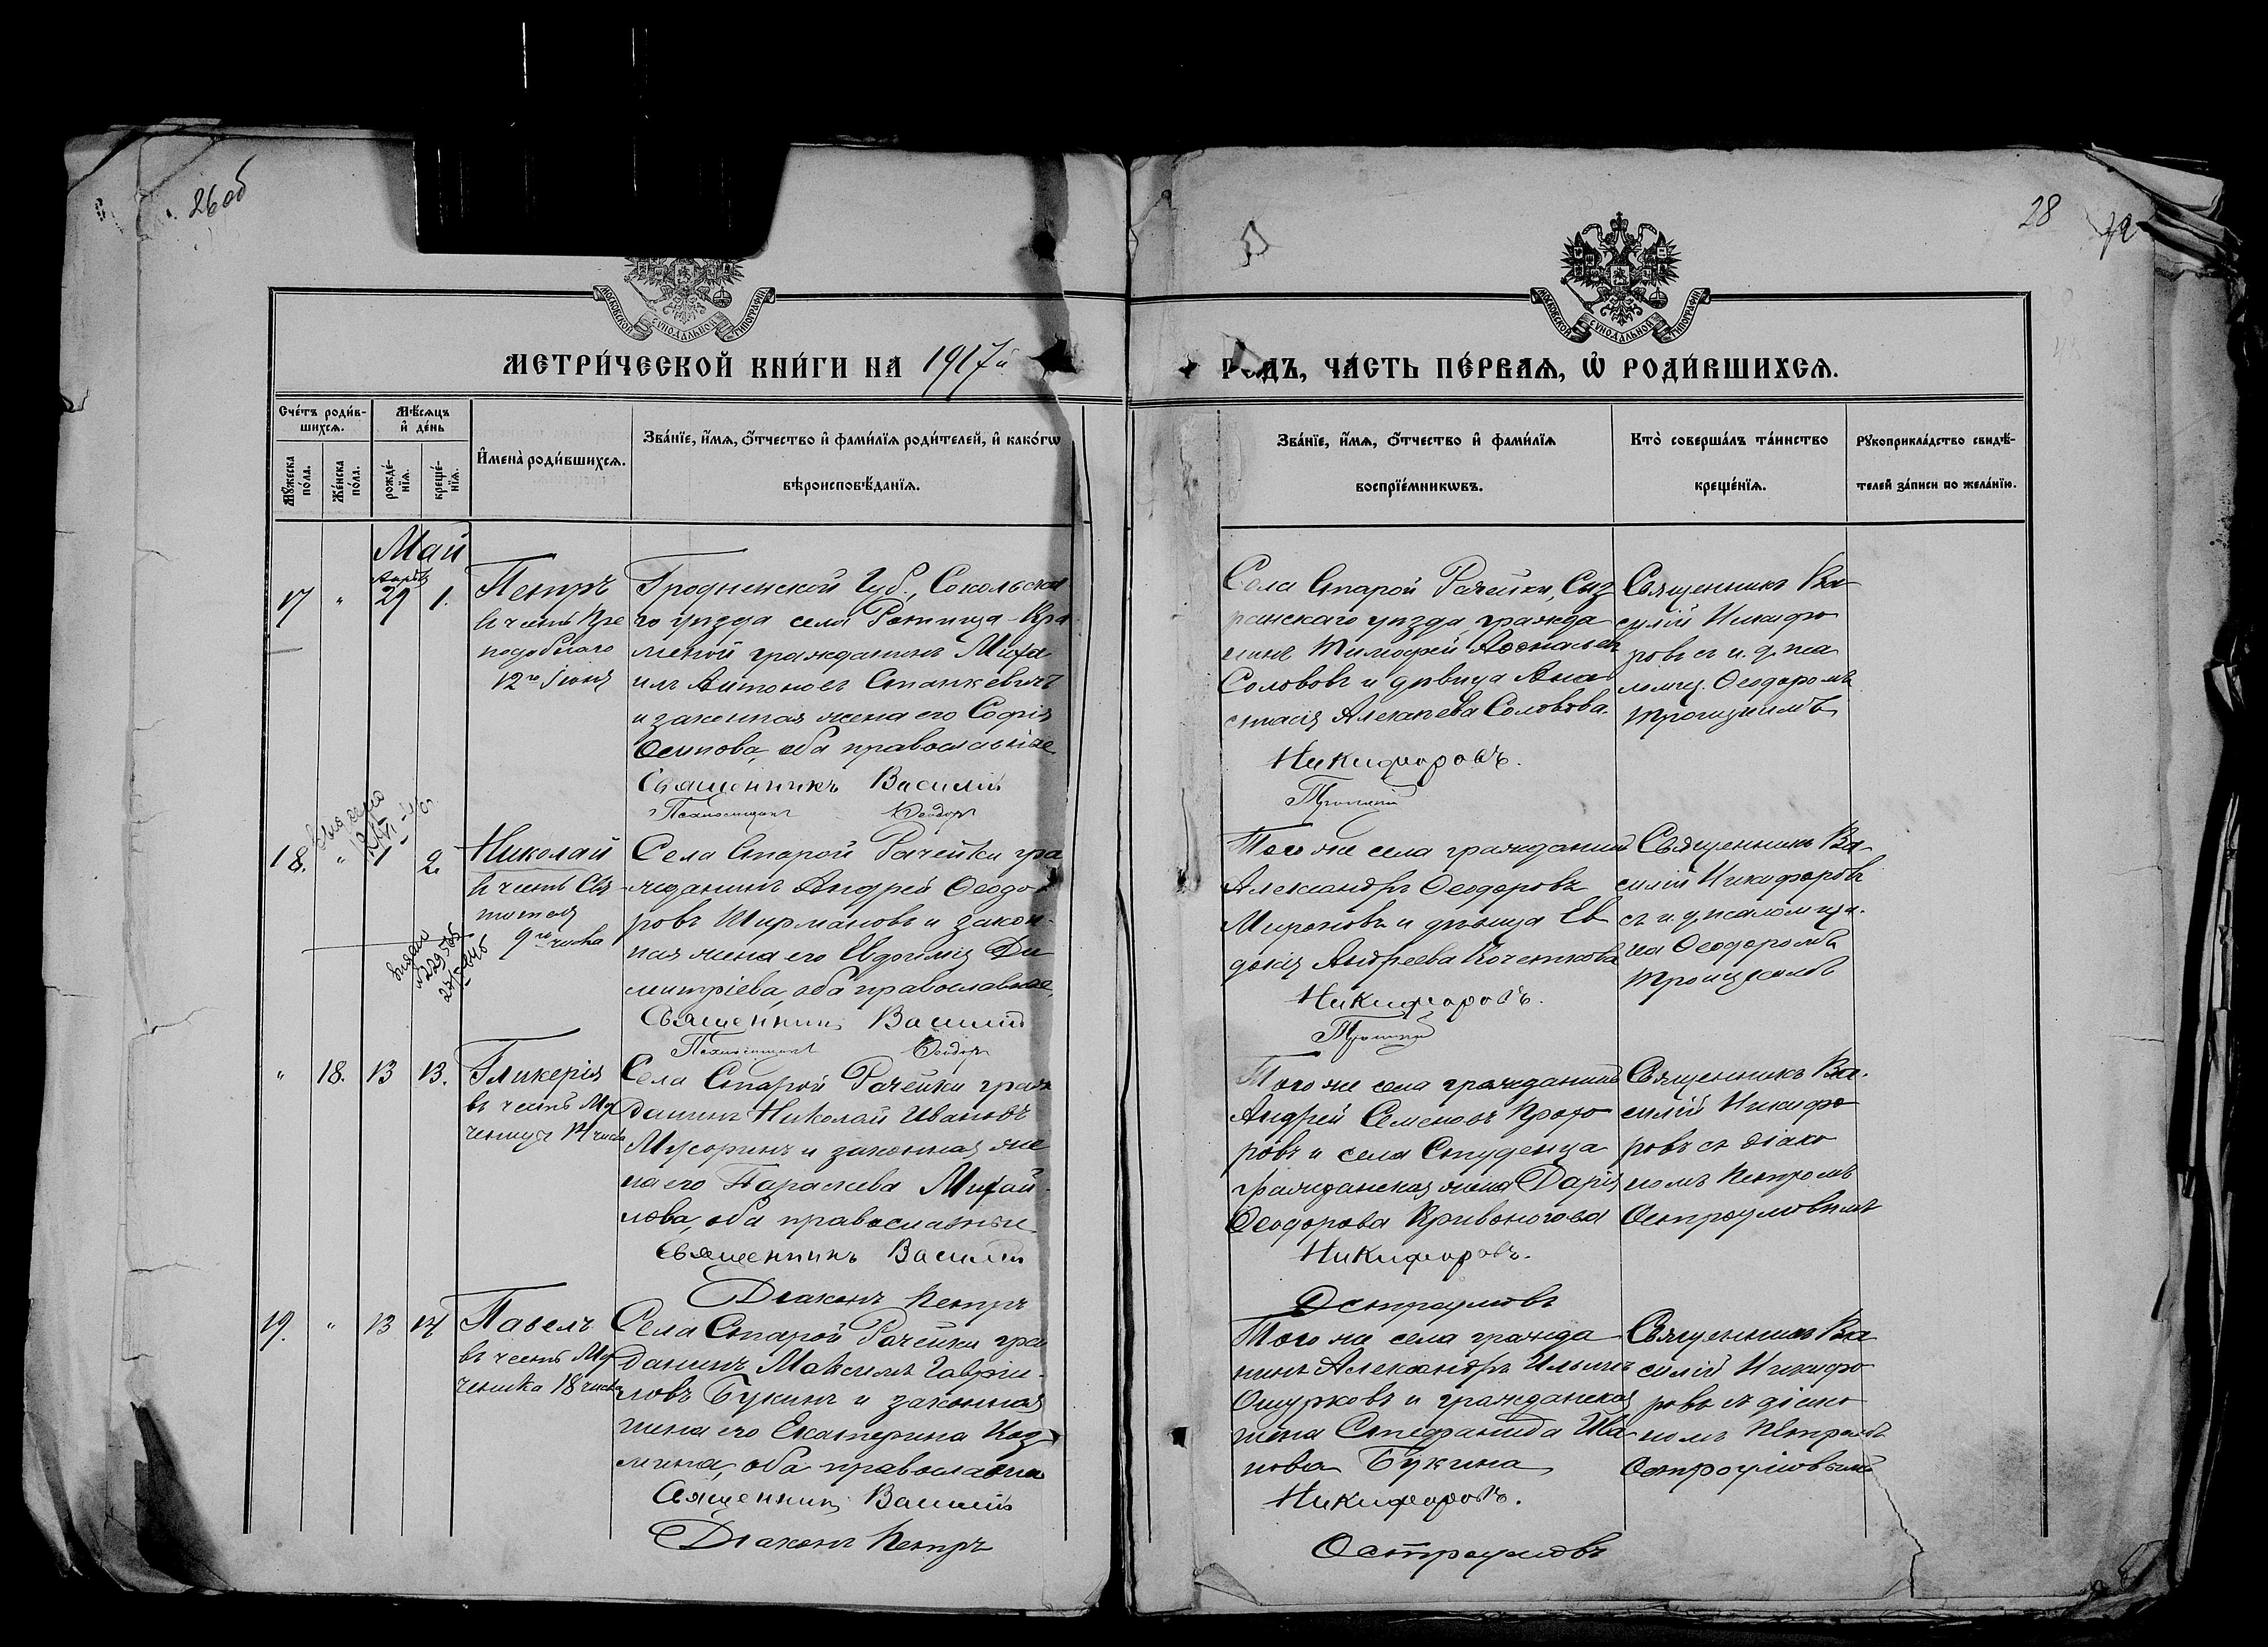 26об
28
МОСКОВСКОЙ СѴНОДАЛЬНОЙ ТИПОГРАФІИ
МОСКОВСКОЙ СѴНОДАЛЬНОЙ ТИПОГРАФІИ
МЕТРИ́ЧЕСКОЙ КНИ́ГИ НА 1917й
ГОДЪ, ЧА́СТЬ ПЕ́РВАЯ, Ѡ РОДИ́ВШИХСЯ.
Сче́тъ роди́в-
шихся.
Мѣ́сяцъ
и́ де́нь
Му́жеска по́ла.
Же́нска по́ла.
рожде́-
нїя.
креще́-
нїя.
И́мена̀ роди́вшихся.
Зва́нїе, и́мя, о́тчество и́ фами́лїя роди́телей, и́ како́гѡ
вѣроисповѣ́данїя.
Зва́нїе, и́мя, о́тчество и́ фами́лїя
воспрїе́мникѡвъ.
Кто̀ соверша́лъ та́инство
креще́нїя.
Рꙋкоприкла́дство свидѣ́-
телей за́писи по жела́нїю.
Май
17 " Апрѣ 29 1.
Петръ
в честь Пре
подобнаго
12го Іюня
Гродненской Губ., Сокольска
го уезда села
гражданинъ Миха
илъ Антоновъ Станкевичъ
и законная жена его Софія
Осипова, оба православные
Священникъ Василій
Псаломщикъ Ѳеодоръ
Села Старой Рачейки, Сыз
ранскаго уезда гражда
нинъ Тимофей Аѳонасьев
Соловьвъ и дѣвица Ана
стасія Алексѣева Соловьва.
Никифоровъ.
Троицкій
Священникъ Ва
силій Никифо
ровъ съ и. д. пса
ломщ. Ѳеодоромъ
Троицкимъ
18. " 1 2.
Николай
в честь Свя
тителя
9го числа
Села Старой Рачейки гра
жданинъ Андрей Ѳеодо
ровъ Ширмановъ и закон
ная жена его Евфимія Ди
митріева, оба православные,
Священникъ Василій
Псаломщикъ Ѳеодоръ
Того же села гражданинъ
Александръ Ѳеодоровъ
Мироновъ и дѣвица Ев
докія Андреева Коченкова
Никифоровъ.
Троицкій
Священникъ Ва-
силій Никифоровъ
съ и. д. псаломщи-
ка Ѳеодоромъ
Троицкимъ
" 18. 13 13.
Гликерія
въ честь Му
ченицы 14 числа
Села Старой Рачейки граж
данинъ Николай Ивановъ
Мусоринъ и законная же
на его Параскева Михай
лова, оба православные
Священникъ Василій
Діаконъ Петръ
Того же села гражданинъ
Андрей Семеновъ Прохо
ровъ и села Студенца
гражданская жена Дарія
Ѳеодорова Кривоногова
Никифоровъ.
Остроумовъ
Священникъ Ва-
силій Никифо
ровъ съ діако
номъ Петромъ
Остроумовымъ
19. " 13 14
Павелъ
въ честь Му
ченика 18 числа
Села Старой Рачейки гра
данинъ Максимъ Гаврiи-
ловъ Букинъ и законная
жена его Екатерина Коз
мина, оба православные
Священникъ Василій
Діаконъ Петръ
Того же села гражда
нинъ Александръ Ильинъ
Ошурковъ и гражданская
жена Стефанида Ива
нова Букина
Никифоровъ.
Остроумовъ
Священникъ Ва
силій Никифо
ровъ съ діако
номъ Петромъ
Остроумовымъ